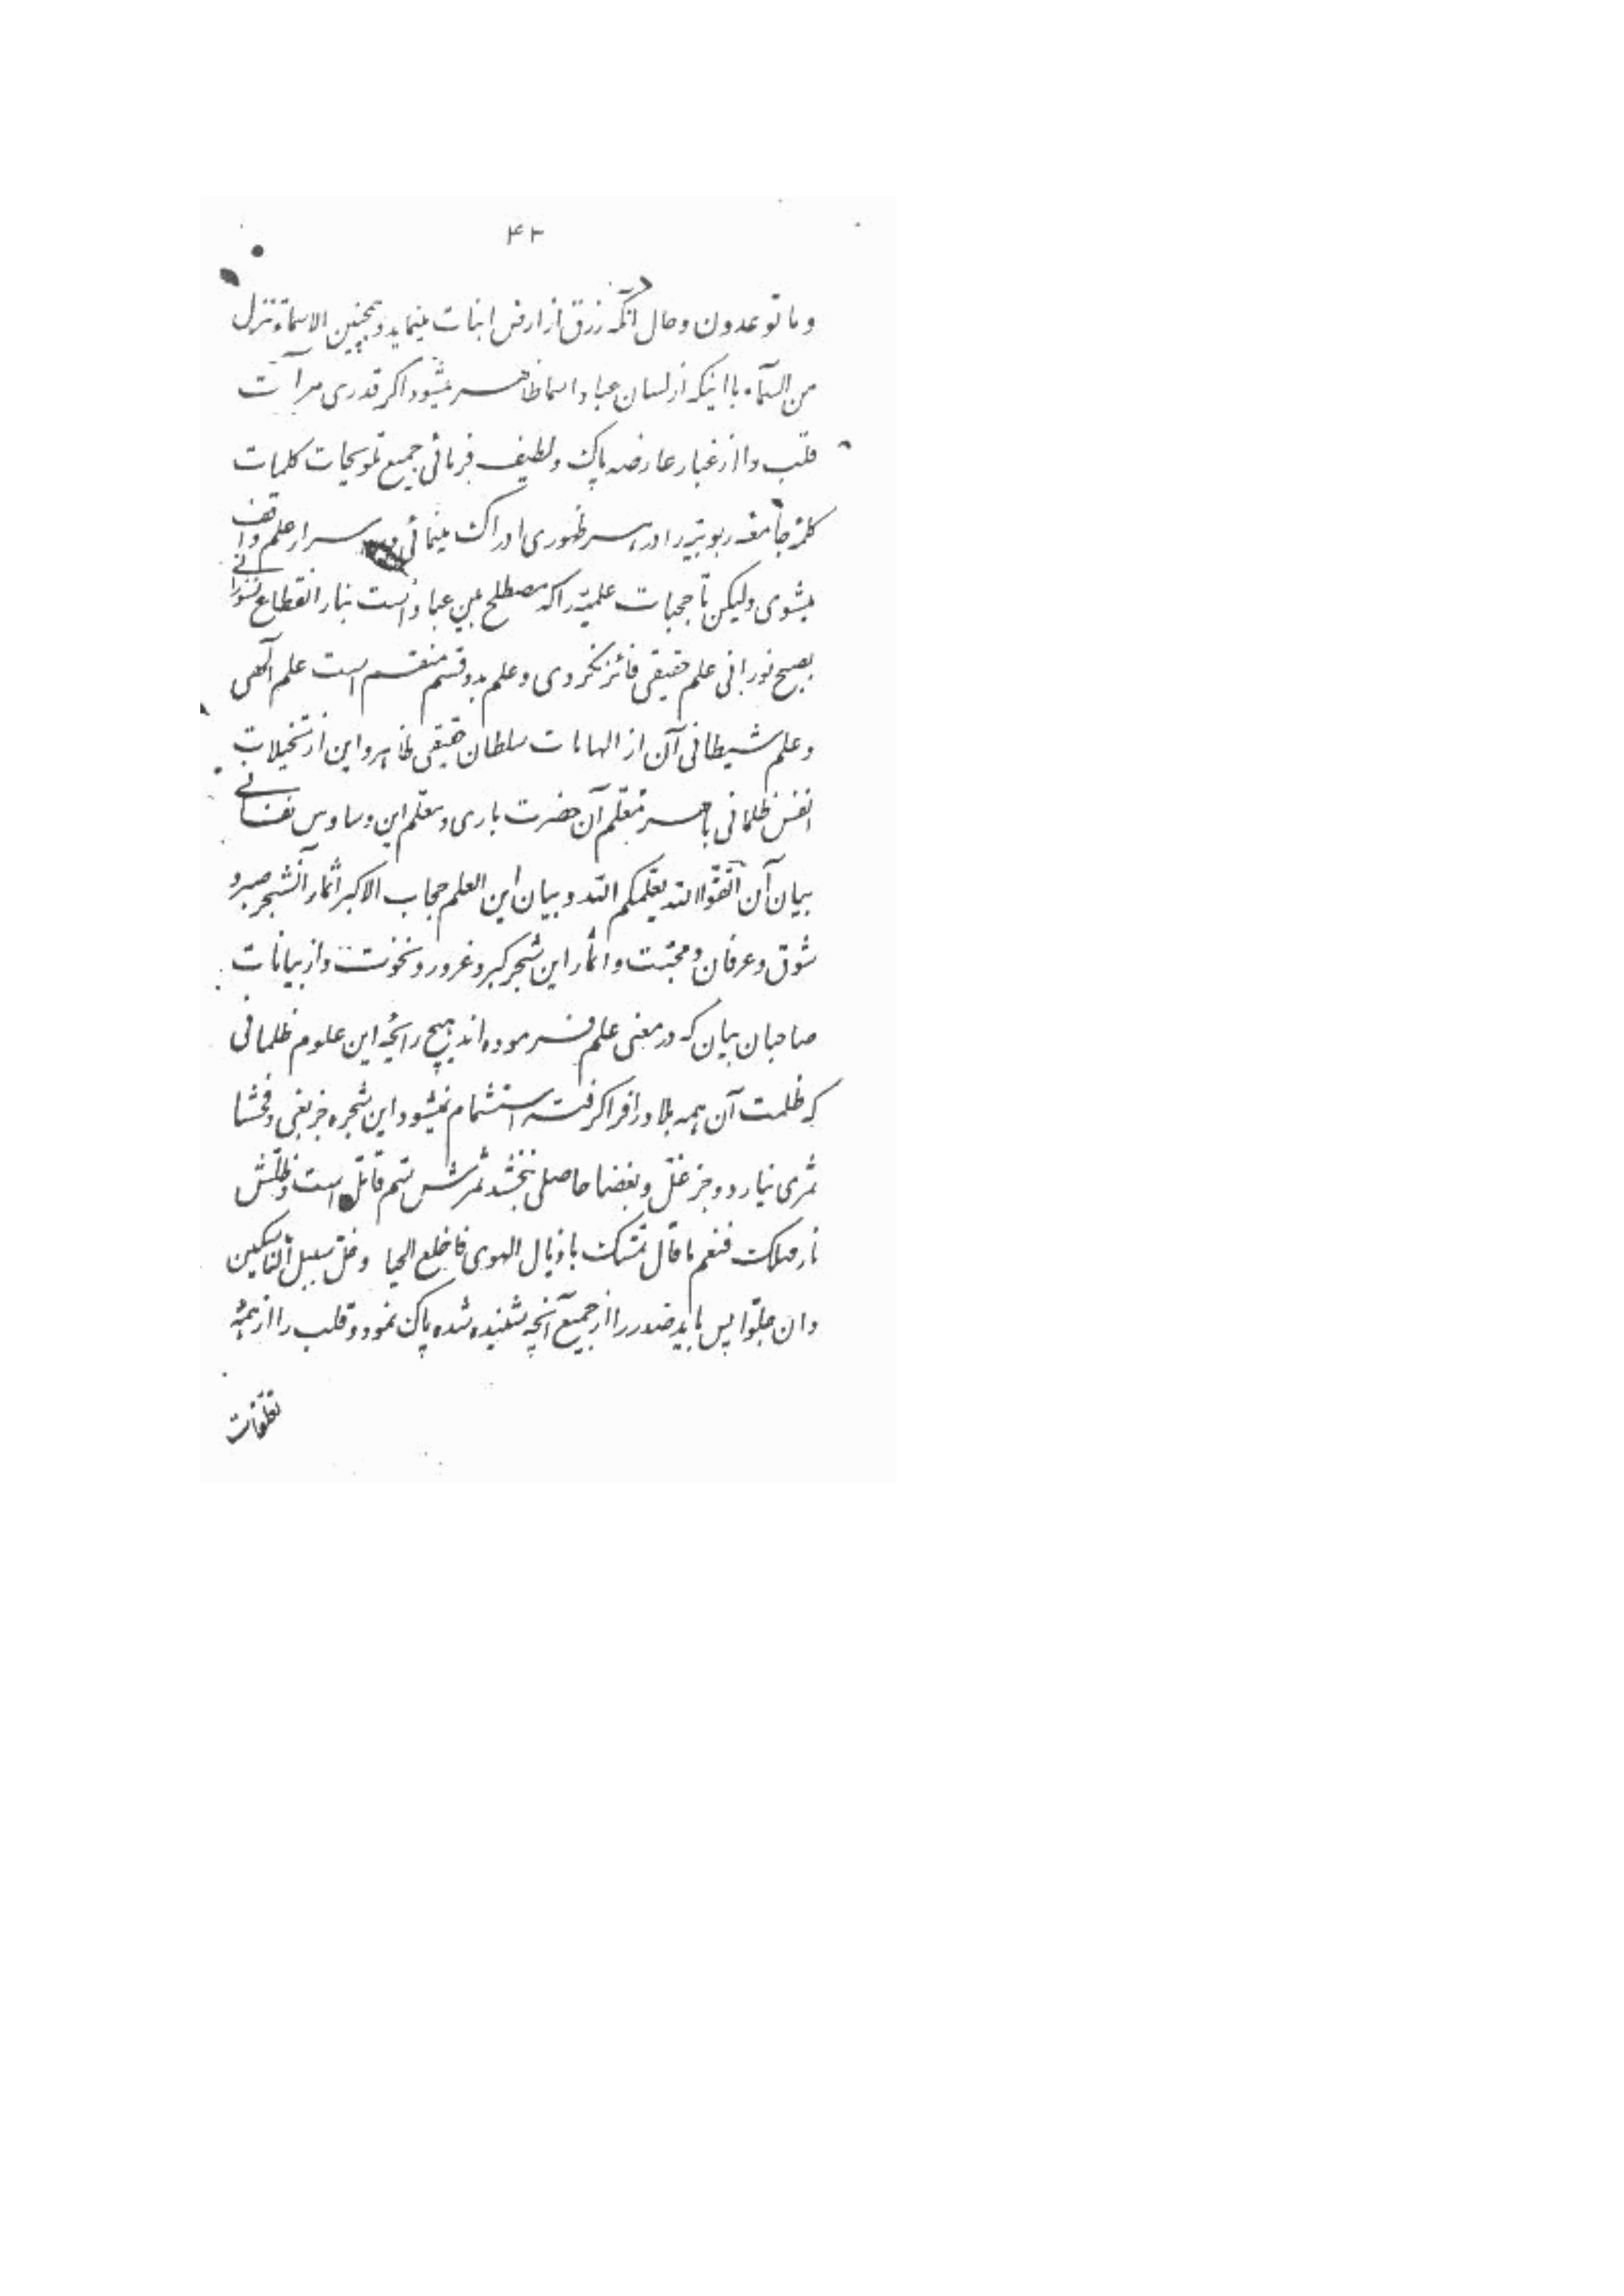 ۴۲
و ما توعدون و حال آنکه رزق از ارض انبات مینماید و همچنین الاسمآء تنزل
من السمآء با اینکه از لسان عباد اسما ظاهر میشود اگر قدری مرآت
قلب را از غبار عارضه پاک و لطیف فرمائی جمیع تلویحات کلمات
کلمهٔ جامعه ربوبیّه را در هر ظهوری ادراک مینمائی و بر اسرار علم واقف
میشوی ولیکن تا حجبات علمیّه را که مصطلح بین عباد است بنار انقطاع نسوزانی
بصبح نورانی علم حقیقی فائز نگردی و علم بدو قسم منقسم است علم الهی
و علم شیطانی آن از الهامات سلطان حقیقی ظاهر و این از تخیلات
انفس ظلمانی باهر معلّم آن حضرت باری و معلّم این وساوس نفسانی
بیان آن اتّقوا الله یعلّمکم الله و بیان این العلم حجاب الاکبر اثمار آن شجر صبر و
شوق و عرفان و محبّت و اثمار این شجر کبر و غرور و نخوت و از بیانات
صاحبان بیان که در معنی علم فرموده اند هیچ رائحهٔ این علوم ظلمانی
که ظلمت آن همه بلاد را فرا گرفته استشمام نمیشود این شجره جز بغی و فحشا
ثمری نیارد و جز غلّ و بغضا حاصلی نبخشد ثمرش سمّ قاتل است و ظلّش
نار مهلک فنعم ما قال تمسّک باذیال الهوی فاخلع الحیا و خلّ سبیل النّاسکین
و ان جلّوا پس باید صدر را از جمیع آنچه شنیده شده پاک نمود و قلب را از همهٔ
تعلقات